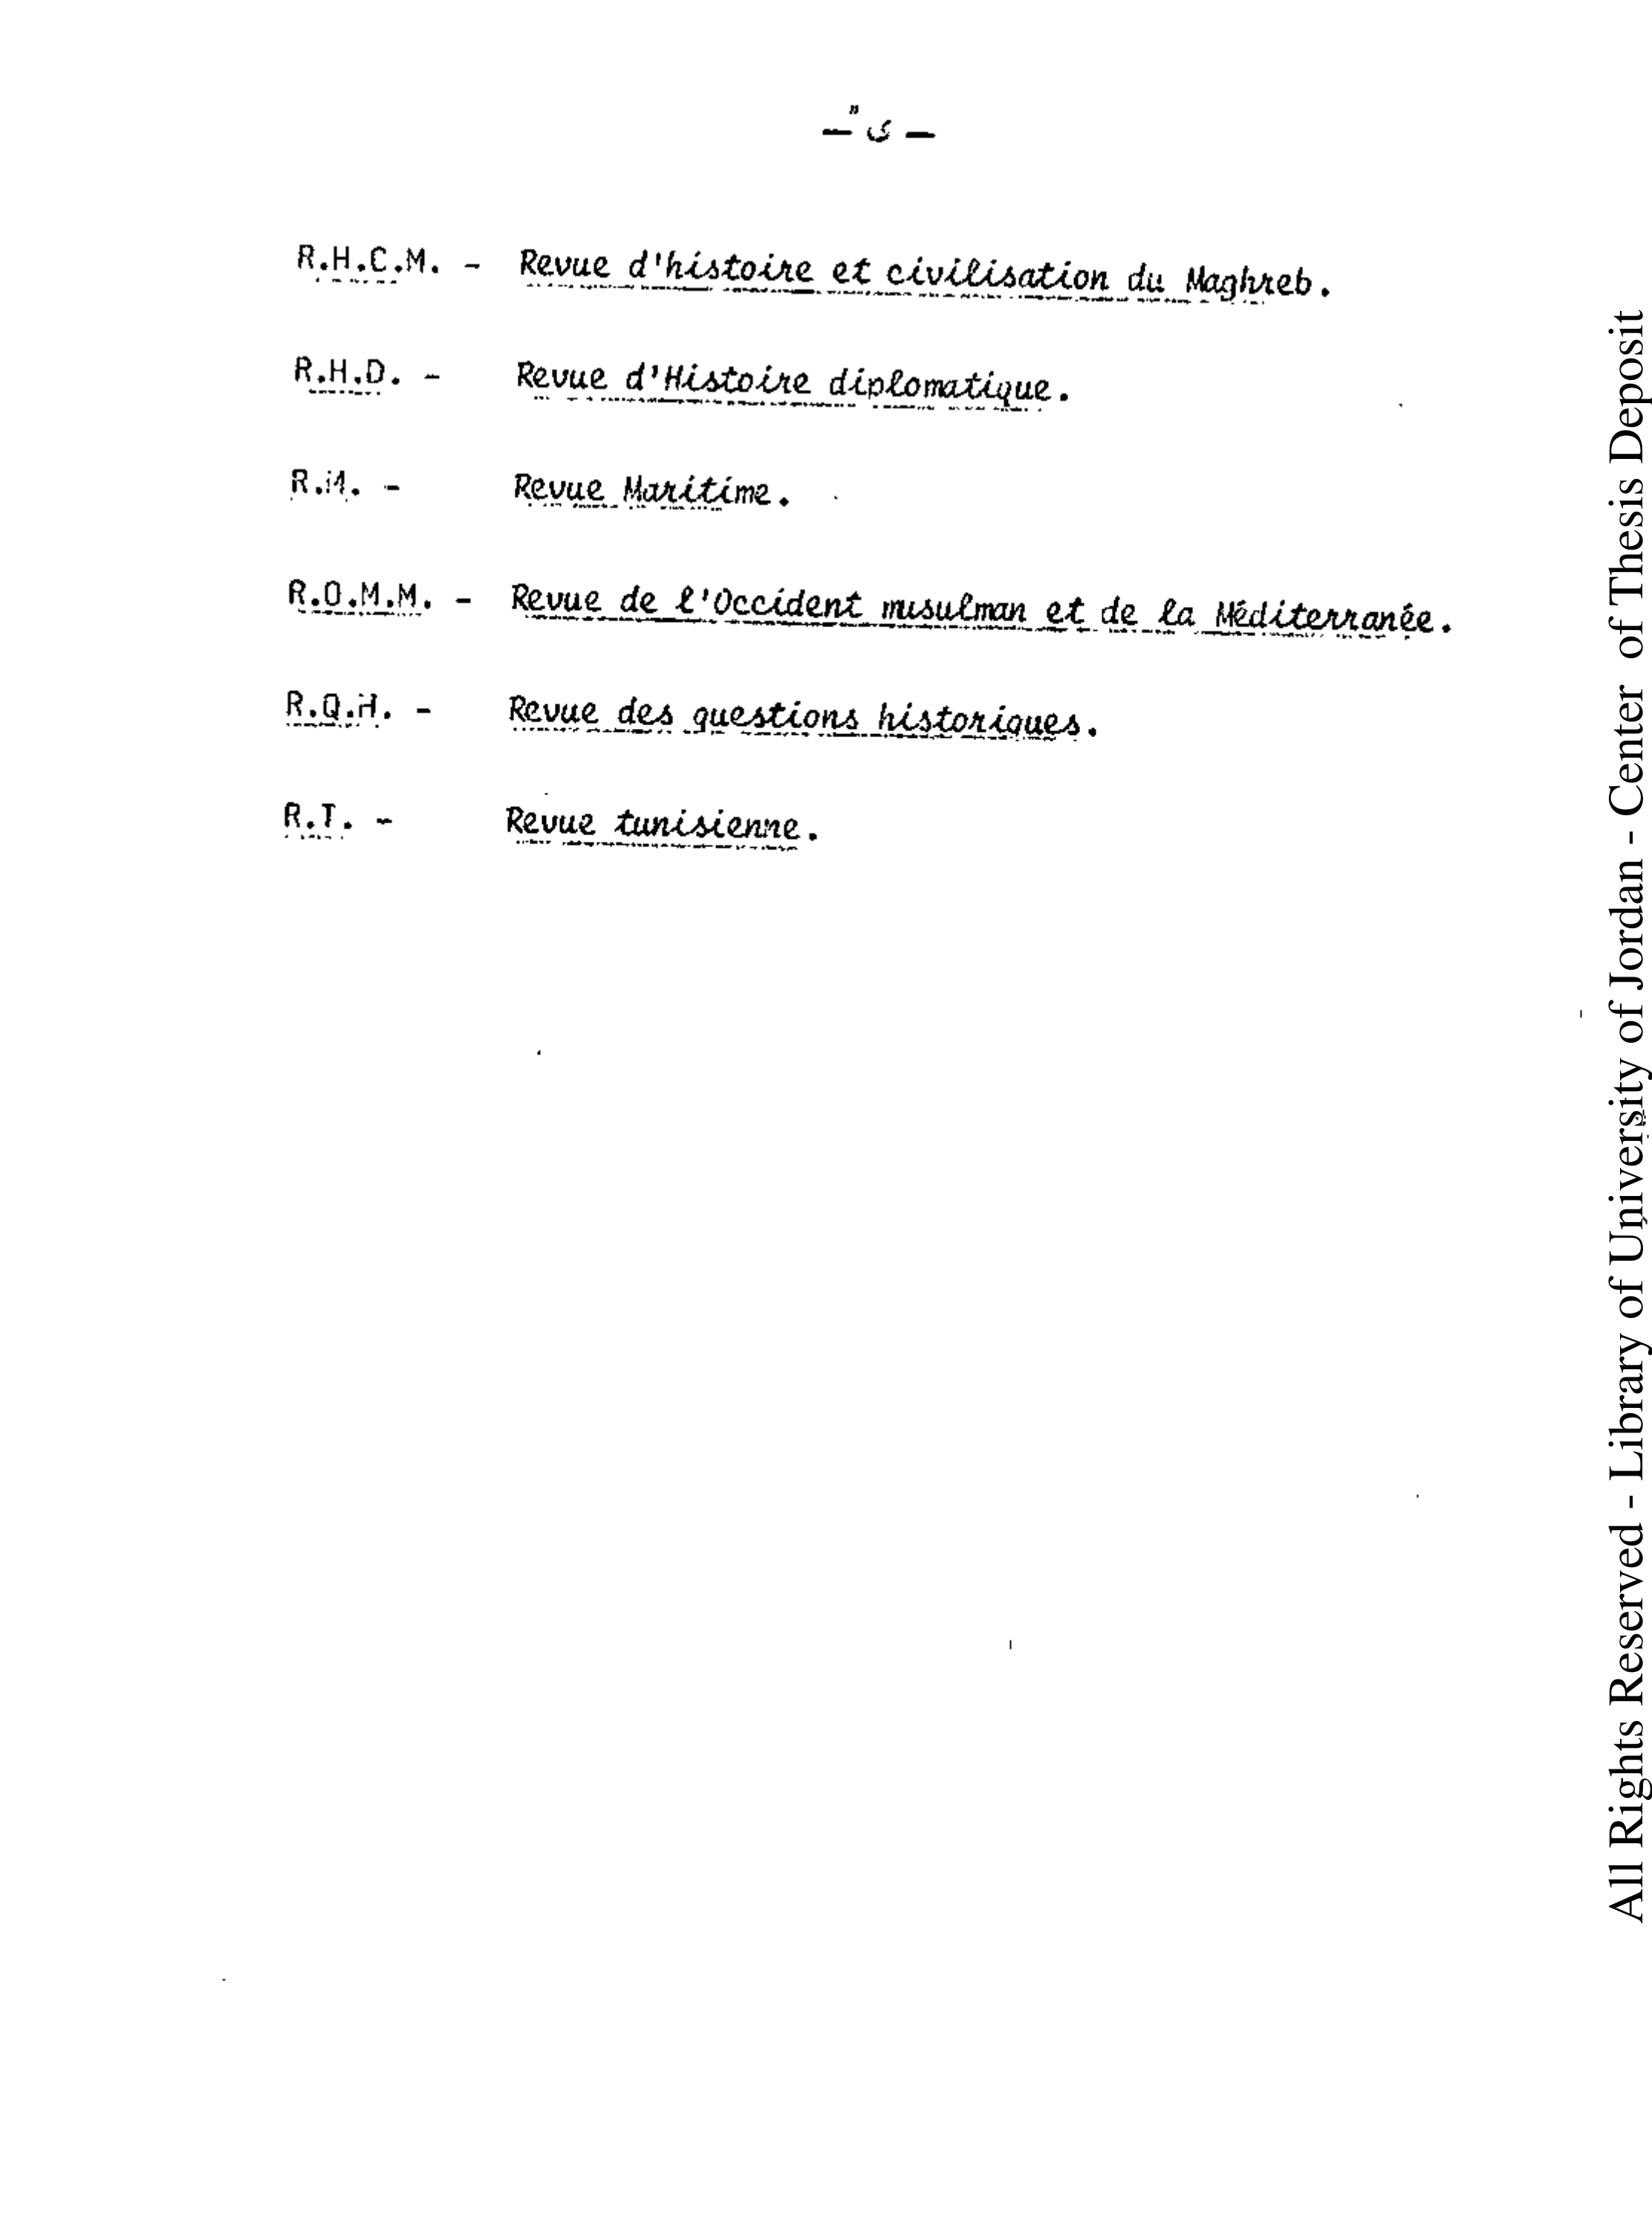 — ی —
R.H.C.M. - Revue d'histoire et civilisation du Maghreb.
R.H.D. - Revue d'Histoire diplomatique.
R.M. - Revue Maritime.
R.O.M.M. - Revue de l'Occident musulman et de la Méditerranée.
R.Q.H. - Revue des questions historiques.
R.T. - Revue tunisienne.
All Rights Reserved - Library of University of Jordan - Center of Thesis Deposit